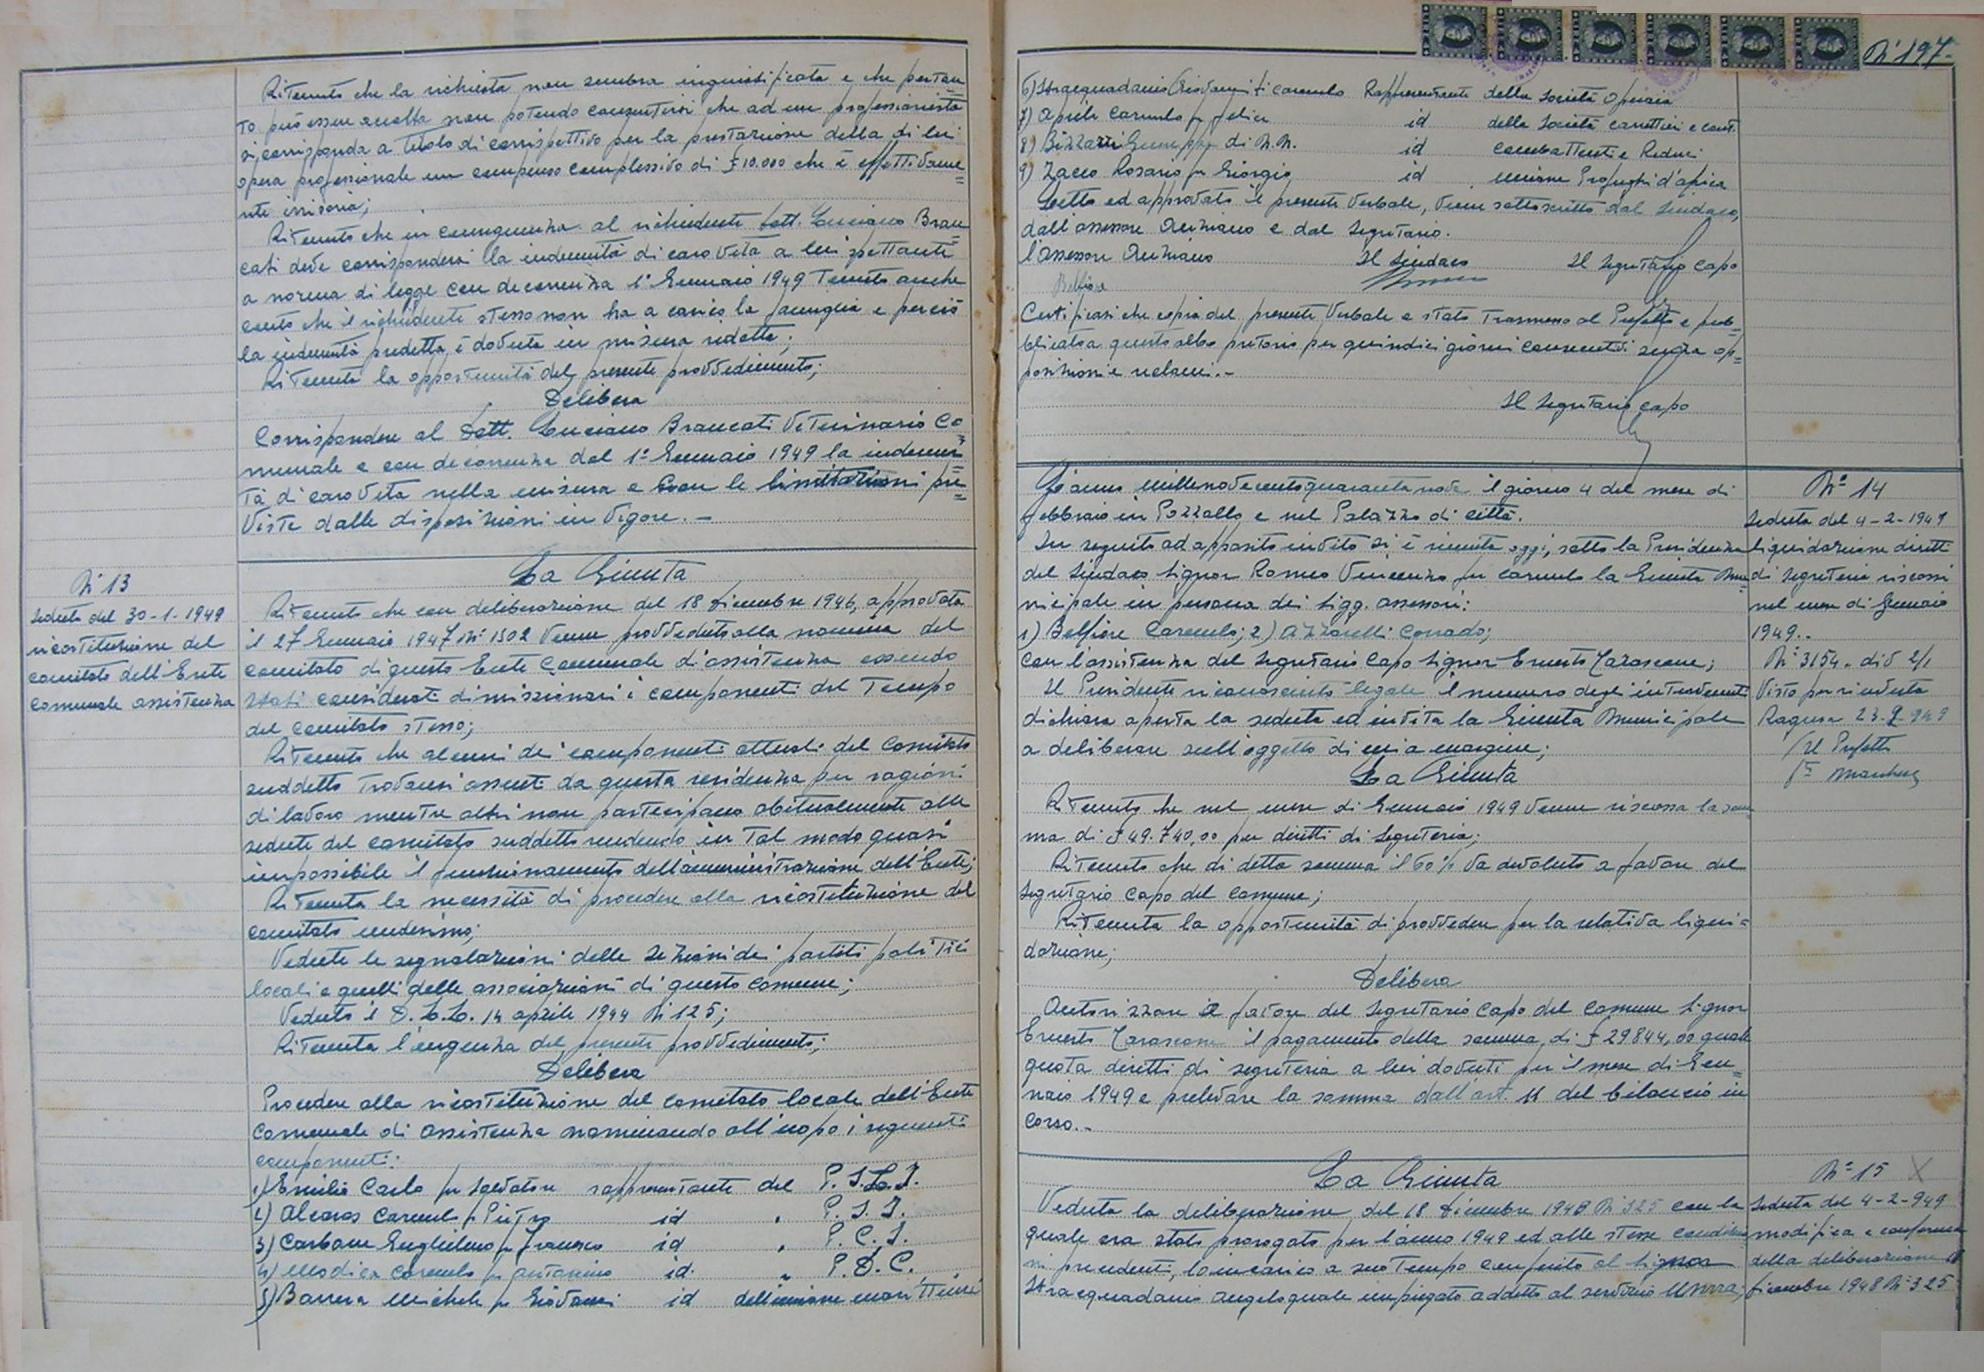 Ritenuto che la richiesta non sembra ingiustificata e che pertan
to può essere accolta non potendo consentirsi che ad un professionista
si corrisponda a titolo di corrispettivo per la prestazione della di lui
opera professionale un compenso complessivo di £ 10.000 che è effettivame=
nte irrisoria;
Ritenuto che in conseguenza al richiedente Dott. Luciano Bran
cati deve corrispondersi la indennità di caro vita a lui spettante
a norma di legge con decorrenza 1° Gennaio 1949 Tenuto anche
conto che il richiedente stesso non ha a carico la famiglia e perciò
la indennità predetta è dovuta in misura ridotta;
Ritenuta la opportunità del presente provvedimento;
Delibera
Corrispondere al Dott. Luciano Brancati Veterinario Co=
munale e con decorrenza dal 1° Gennaio 1949 la indenni
tà di caro vita nella misura e con le limitazioni pre=
viste dalle disposizioni in vigore. -
N° 13
Seduta del 30-1-1949
ricostituzione del
comitato dell'Ente
comunale assistenza
La Giunta
Ritenuto che con deliberazione del 18 dicembre 1946, approvata
il 27 Gennaio 1947 N° 1502 venne provveduto alla nomina del
comitato di questo Ente Comunale d'assistenza essendo
stati considerati dimissionari i componenti del Tempo
del comitato stesso;
Ritenuto che alcuni dei componenti attuali del Comitato
suddetto trovansi assenti da questa residenza per ragioni
di lavoro mentre altri non partecipano abitualmente alle
sedute del comitato suddetto rendendo in tal modo quasi
impossibile il funzionamento dell'amministrazione dell'Ente;
Ritenuta la necessità di procedere alla ricostituzione del
comitato medesimo;
Vedute le segnalazioni delle Sezioni dei partiti politici
locali e quelli delle associazioni di questo Comune;
Veduto il D. L. L. 14 aprile 1944 N° 125;
Ritenuta l'urgenza del presente provvedimento;
Delibera
Procedere alla ricostituzione del comitato locale dell'Ente
Comunale di assistenza nominando all'uopo i seguenti
componenti:
1) Emilio Carlo fu Salvatore rappresentante del P. S. L. I.
2) Alecos Carmelo fu Pietro id " P. S. I.
3) Carbone Guglielmo fu Francesco id " P. C. I.
4) Modica Carmelo fu Antonino id. " P. D. C.
5) Barrera Michele fu Giovanni id dell'unione marittimi
N° 197-
6) Stracquadanio Giovanni di Carmelo Rappresentante della Società Operaia
7) Aprile Carmelo fu Felice id della Società carrettieri e cont.
8) Bizzarri Giuseppe di N. N. id combattenti e Reduci
9) Zacco Rosario fu Giorgio id unione Profughi d'africa
Letto ed approvato il presente verbale, viene sottoscritto dal Sindaco,
dall'assessore Anziano e dal Segretario.
l'Assessore Anziano Il Sindaco Il Segretario Capo
Belfiore
Certificasi che copia del presente verbale è stato trasmesso al Prefetto e pub=
blicato a questo albo pretorio per quindici giorni consecutivi senza op=
posizioni e reclami. -
Il Segretario Capo
L'anno millenovecentoquarantanove il giorno 4 del mese di
febbraio in Pozzallo e nel Palazzo di città.
In seguito ad apposito invito si è riunita oggi, sotto la Presidenza
del Sindaco Signor Romeo Vincenzo fu Carmelo la Giunta Mu
nicipale in persona dei Sigg. assessori:
1) Belfiore Carmelo; 2) Azzarelli Corrado;
Con l'assistenza del Segretario Capo Signor Ernesto Tarascone;
Il Presidente riconosciuto legale il numero degli intervenuti
dichiara aperta la seduta ed invita la Giunta Municipale
a deliberare sull'oggetto di cui a margine;
La Giunta
Ritenuto che nel mese di Gennaio 1949 venne riscossa la som
ma di £ 49.740,00 per diritti di Segreteria;
Ritenuto che di detta somma il 60% va devoluto a favore del
Segretario Capo del Comune;
Ritenuta la opportunità di provvedere per la relativa liqui=
dazione;
Delibera
Autorizzare a favore del Segretario Capo del Comune Signor
Ernesto Tarascone il pagamento della somma di £ 29.844,00 quale
quota diritti di segreteria a lui dovuti per il mese di Gen=
naio 1949 e prelevare la somma dall'art. 11 del bilancio in
corso. -
N° 14
Seduta del 4-2-1949
liquidazione diritti
di Segreteria riscossi
nel mese di Gennaio
1949. -
N° 3154. div 2/1
Visto per ricevuta
Ragusa 23.2.949
Il Prefetto
La Giunta
Veduta la deliberazione del 18 dicembre 1948 N° 325 con la
quale era stato prorogato per l'anno 1949 ed alle stesse condizio
ni precedenti, lo incarico a suo tempo conferito al Signor
Stracquadanio Angelo quale impiegato addetto al servizio Unrra;
N° 15 X
Seduta del 4-2-949
modifica e conferma
della deliberazione 18
dicembre 1948 N° 325